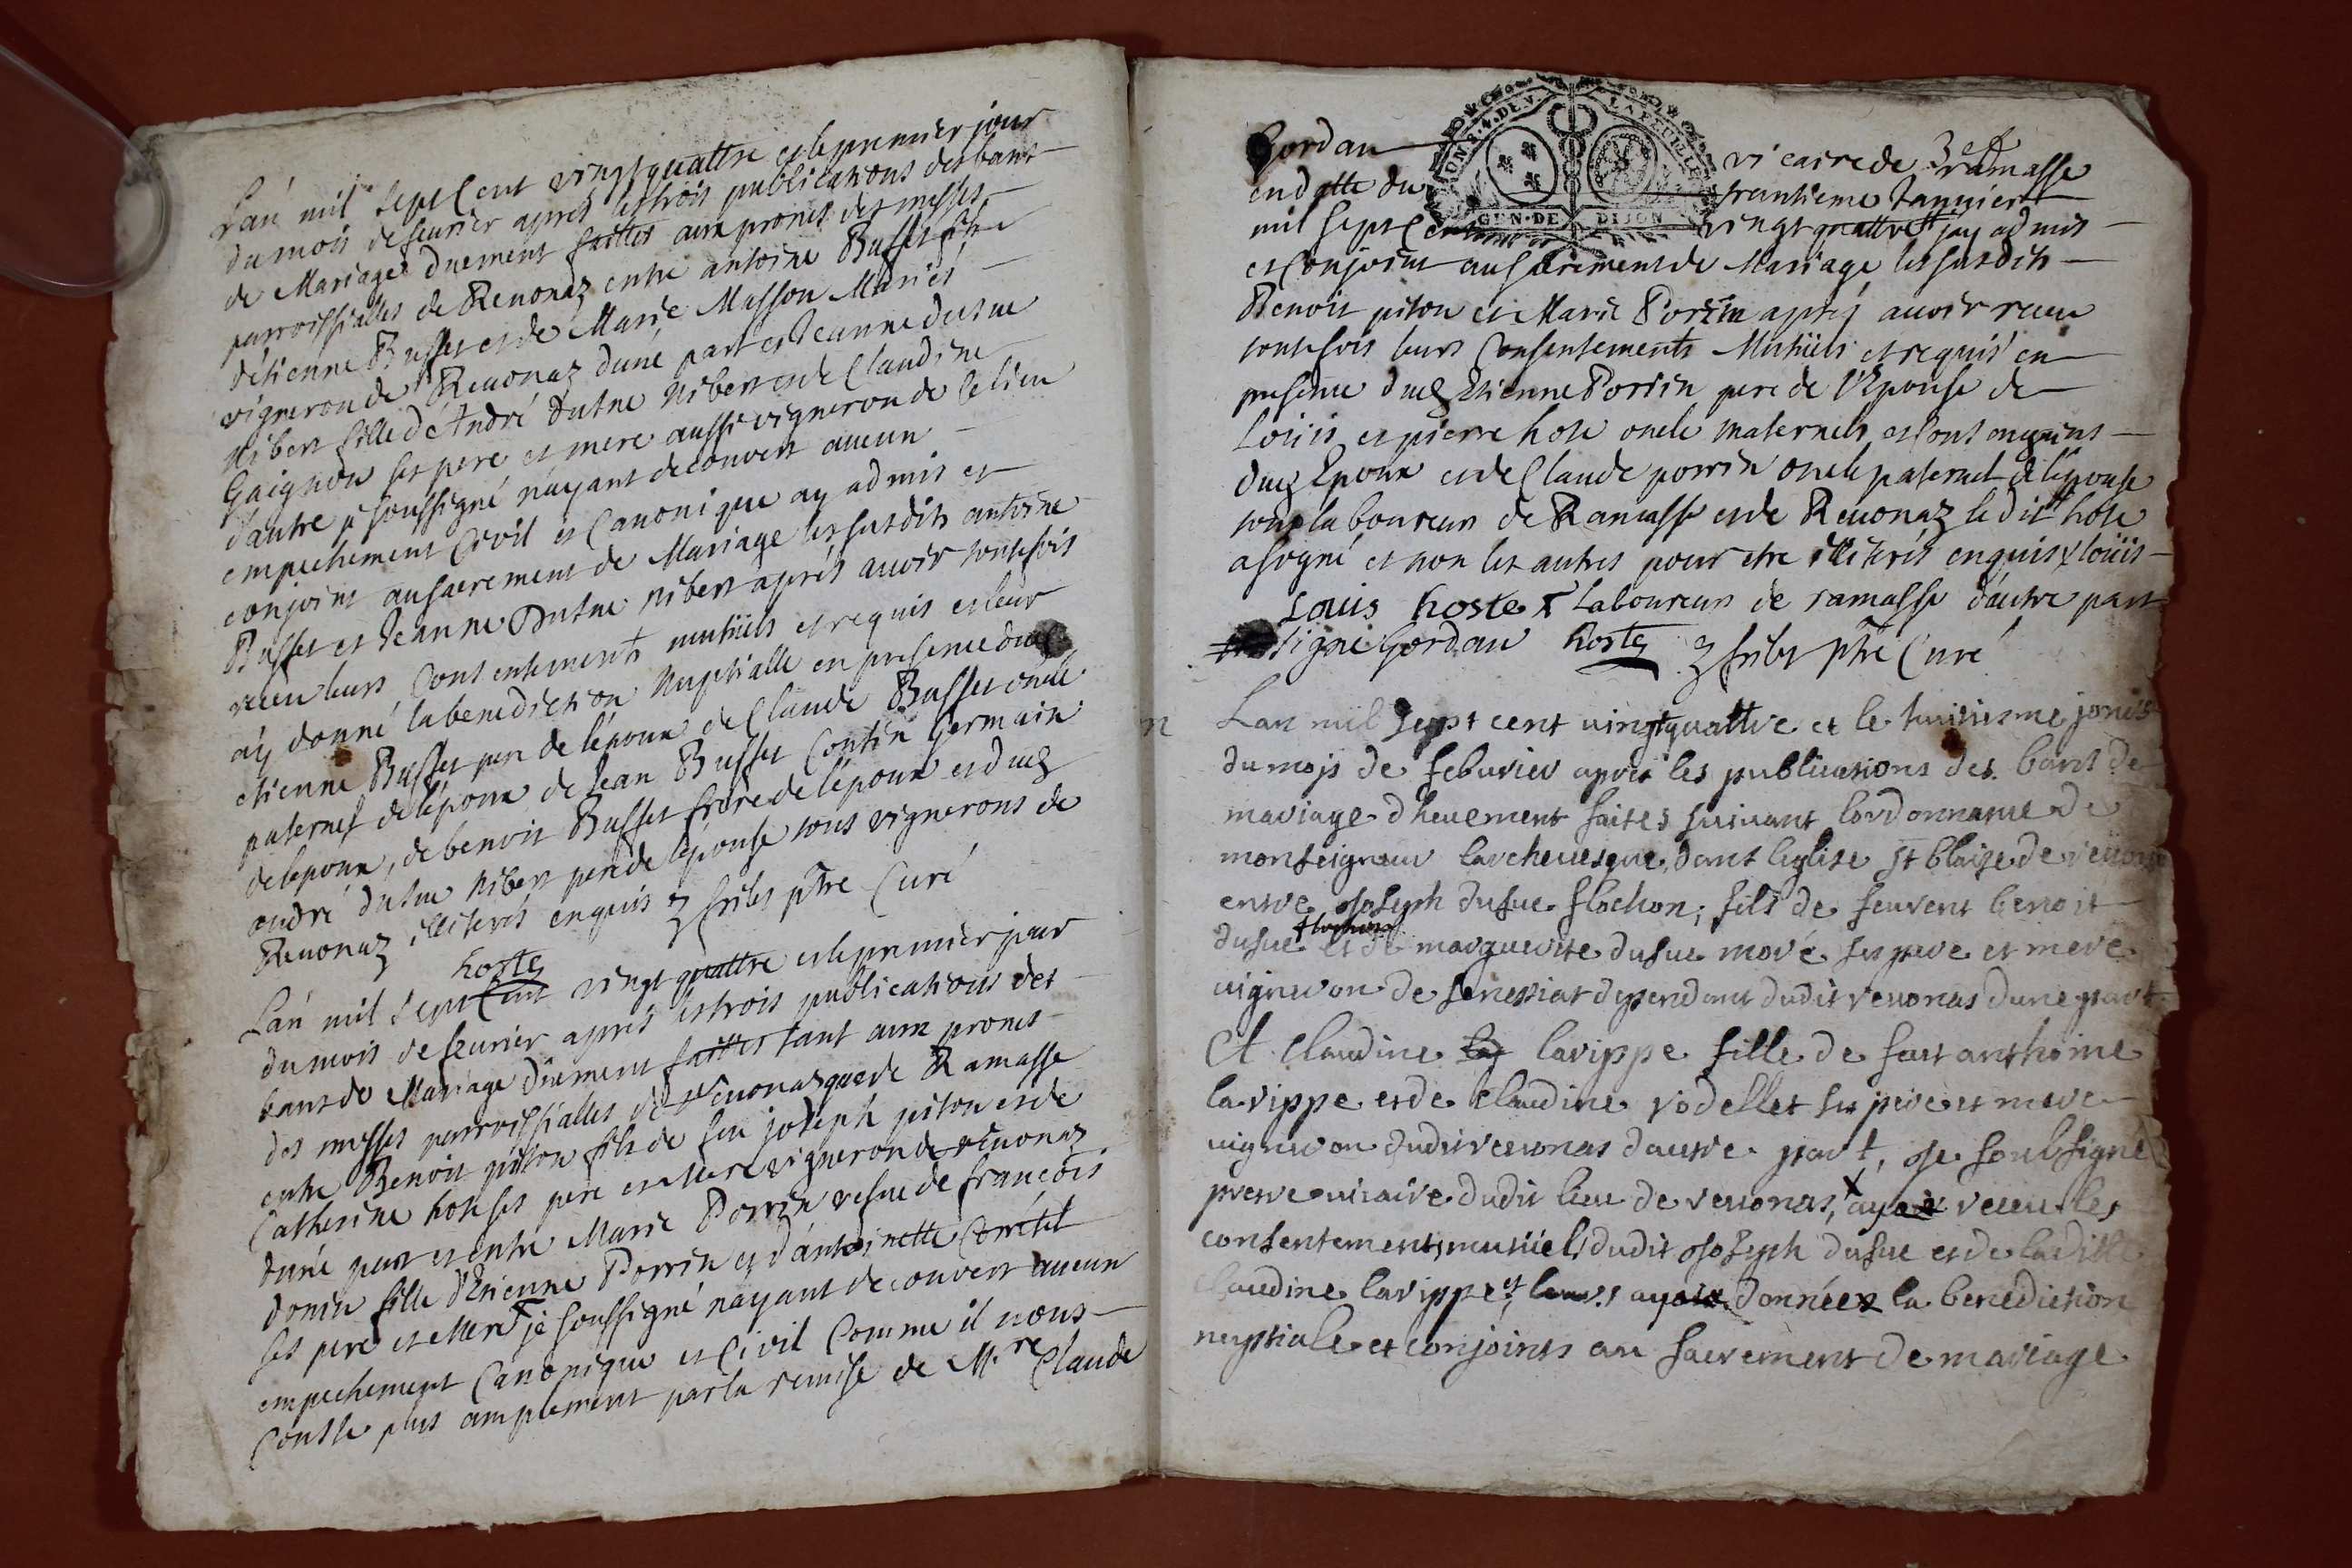 Lan mil sept Cent vingt quattre et le premier jour
du mois de feurier aprés les trois publications des bans
de Mariage duement faittes aux pronts des messes
parroissialles de Reuonaz entre antoine Buffet fils
détienne Buffet et de Marie Masson Mariés
vigneron de Reuonaz duné part et Jeanne dusue
Nibert fille d'André Dusue Nibert et de Claudine
Gaignon ses pere et mere aussi vigneron de Ce lieu
dautre je soussigné náyant decouvert aucun
empechement Civil et Canonique ay admis et
conjoint au sacrement de Mariage les susdits antoine
Buffet et Jeanne Dusue Nibert aprés auoir toutefois
receu leurs Consentements mutüels et requis et leur
ay donné la benediction Nuptialle en presence dud
etienne Buffet pere de lépoux de Claude Buffet oncle
paternel de lépoux de Jean Buffet Cousin Germain
de lepoux, de benoit Buffet frere de lépoux et dud
andré dusue Nibert pere de lépouse tous vignerons de
Reuonaz illiterés enquis pbre Curé
hoste
Lán mil sept Cent vingt quattre et le premier jour
du mois de feurier aprés les trois publications des
bans de Mariage düement faittes tant aux prones
des messes parroissialles de Reuonas que de Ramasse
entre Benoit piton fils de feu joseph piton et de
Catherine hoste ses pere et Mere vigneron de reuonaz
duné part et entre Marie Porrin vefue de francois
donin fille d'Etienne Porrin et d'antoinette
ses pere et Mere je soussigné náyant decouvert aucun
empechement Canonique et Civil Comme il nous
Conste plus amplement par la remise de M.re Claude
Gordan vicaire de ramasse
en datte du trentieme Janvier
mil sept Cent vingt quattre jay admis
et Conjoint au sacrement de Mariage les susdits
Benoit piton et Marie Porrin aprés auoir receu
toutefois leurs Consentements Mutüels et requis en
presence dud Etienne Porrin pere de l'Epouse de
Loüis et pierre hoste oncle maternels et
dud Epoux et de Claude porrin oncle paternel de lépouse
tous laboureurs de Ramasse et de Reuonaz le dit hoste
a signé et non les autres pour etre illiterés enquis x loüis
Louis hoste x Laboureur de ramasse dáutre part
signé Gordan hoste pbre Curé
Lan mil sept cent uingtquattre et le huitiesme jours
du mojs de feburier apres les publications des bans de
mariage dheuement faites suiuant lordonnance de
monseigneur larcheuesque, dans leglise st blaise de reuonas
entre Joseph dusue flochon; fils de feu benoit
flochon
dusue et de marguerite dusue moré ses pere et mere
uigneron de senessiat dependant dudit reuonas dune part
et Claudine larippe fille de feu anthoine
larippe et de Claudine rodellet ses pere et mere
uigneron dudit reuonas dautre part, Je soubsigné
prestre uicaire dudit lieu de reuonas, x ay receu les
consentements mutüels dudit Joseph dusue et de ladite
Claudine larippe et donnée la benediction
neuptiale et conjoints au sacrement de mariage
GEN. DE DIJON